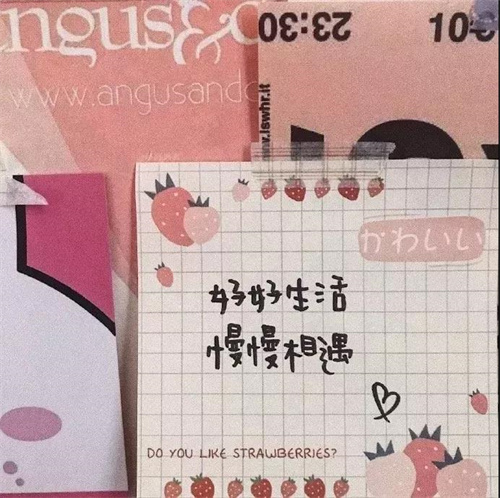 angus&
www.angusando
23:30
100
w.lswhr.it
かわいい
好好生活
慢慢相遇
DO YOU LIKE STRAWBERRIES?